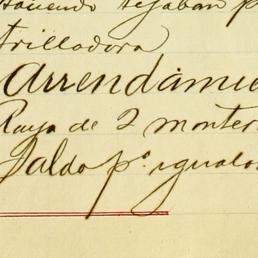 Haciendo tejaban p
trilladora
Arrendamie
Raya de 2 monter
Saldo pª igualar